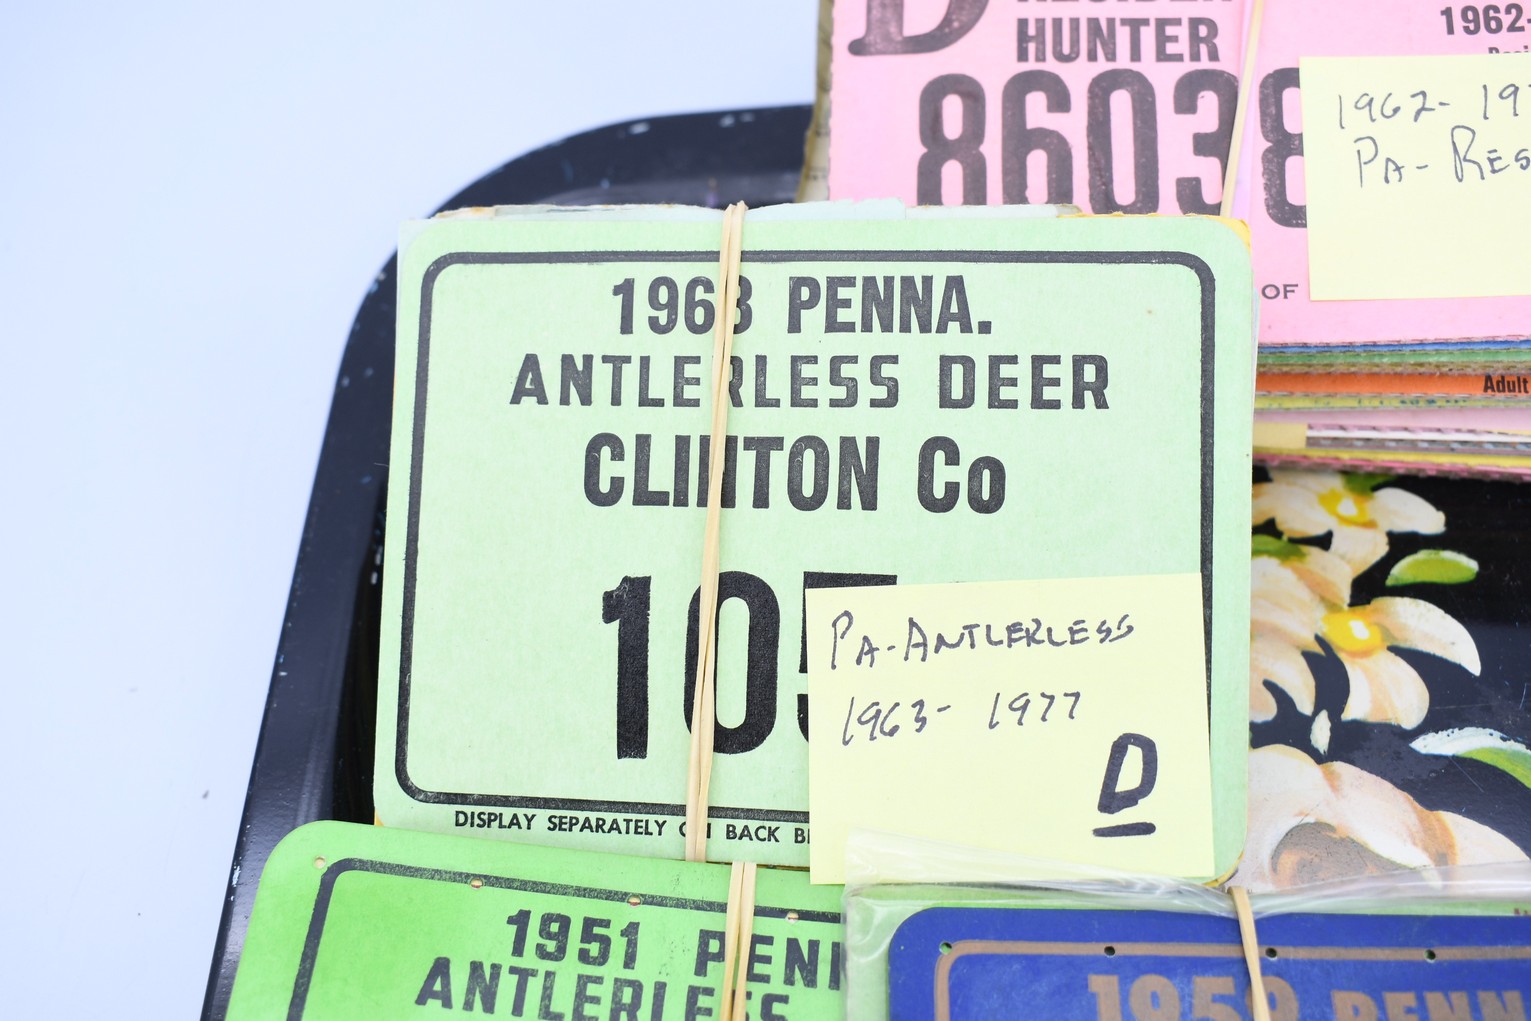 HUNTER
86038
OF
1962-
1962-
PA-RES
Adult
1963 PENNA.
ANTLERLESS DEER
CLINTON Co
105
DISPLAY SEPARATELY ON BACK
PA-ANTLERLESS
1963-1977
D
1951 PENN
ANTLERLESS
1959 PENN